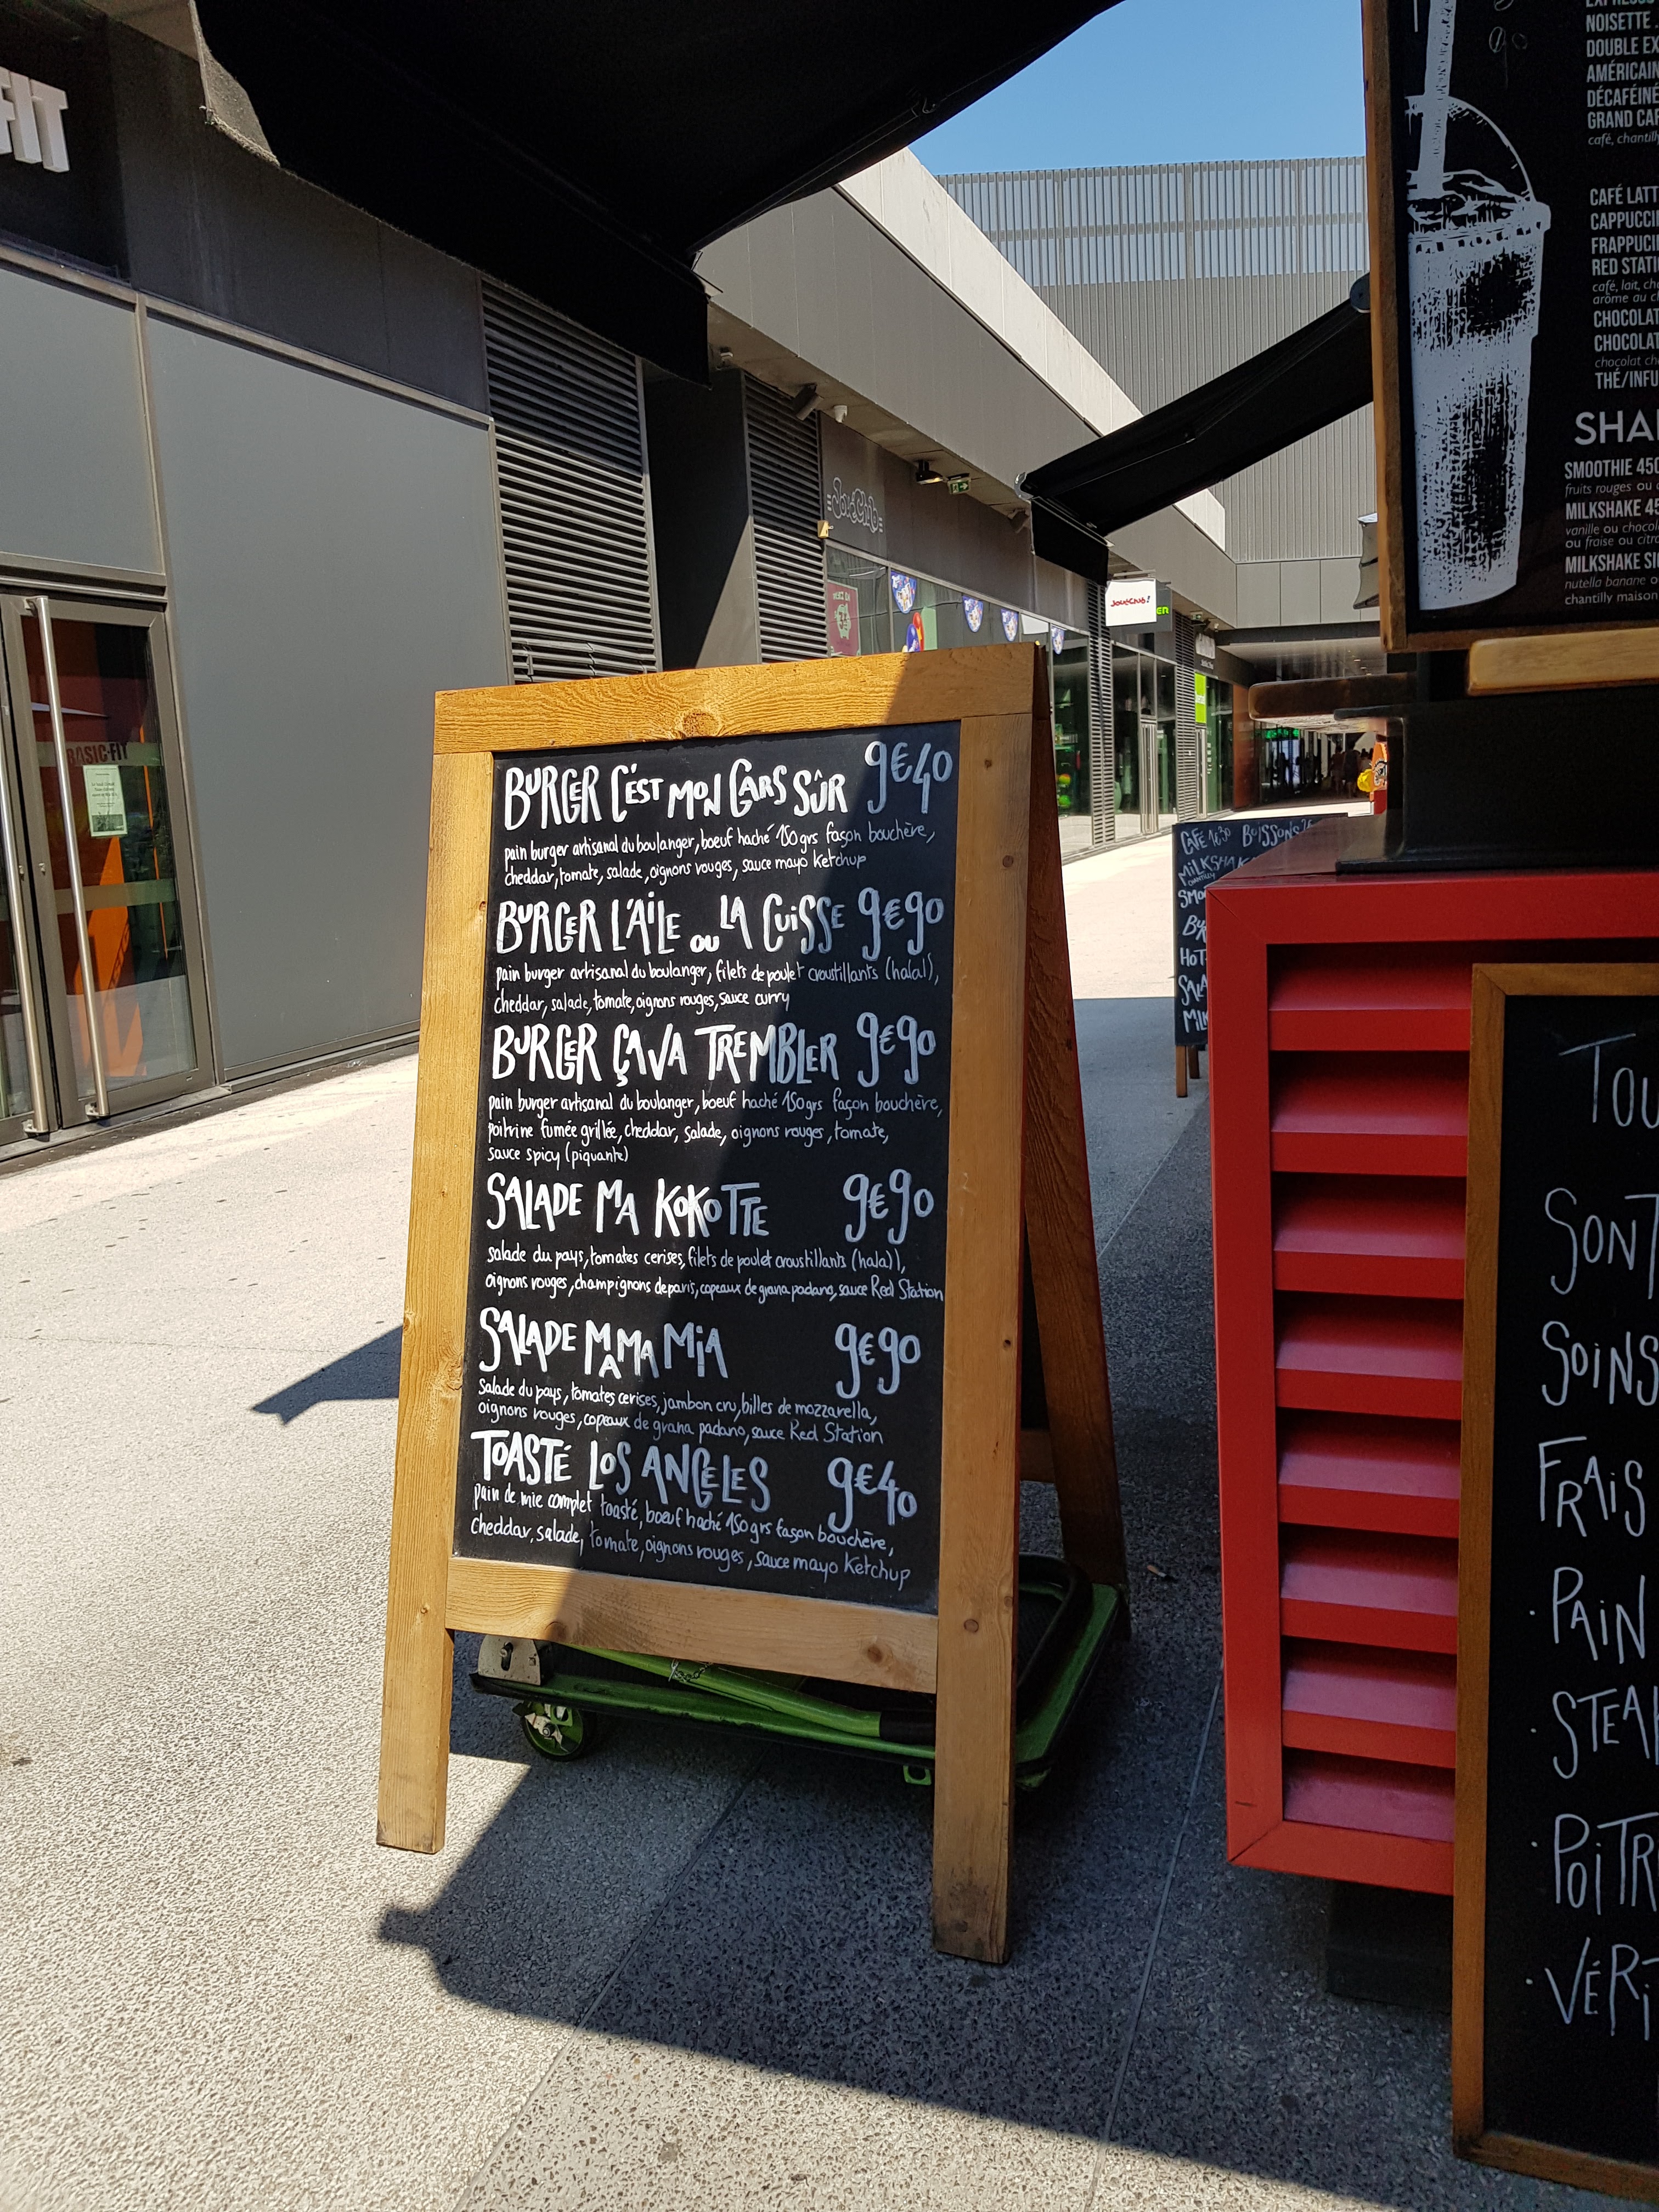 BURGER C'EST MON GARS SÛR 9€40
pain burger artisanal du boulanger, boeuf haché 150grs façon bouchère,
cheddar, tomate, salade, oignons rouges, sauce mayo ketchup
BURGER L'AILE OU LA CUISSE 9€90
pain burger artisanal du boulanger, filets de poulet croustillants (halal),
cheddar, salade, tomate, oignons rouges, sauce curry
BURGER ÇA VA TREMBLER 9€90
pain burger artisanal du boulanger, boeuf haché 150grs façon bouchère,
poitrine fumée grillée, cheddar, salade, oignons rouges, tomate,
sauce spicy (piquante)
SALADE MA KOKOTTE 9€90
salade du pays, tomates cerises, filets de poulet croustillants (halal),
oignons rouges, champignons de paris, copeaux de grana padano, sauce Red Station
SALADE MAMA MIA 9€90
Salade du pays, tomates cerises, jambon cru, billes de mozzarella,
oignons rouges, copeaux de grana padano, sauce Red Station
TOASTÉ LOS ANGELES 9€40
pain de mie complet toasté, boeuf haché 150grs façon bouchère,
Cheddar, salade, tomate, oignons rouges, sauce mayo Ketchup
BASIC-FIT
JouéClub
JouéClub!
NOISETTE
DOUBLE EX
AMÉRICAIN
DÉCAFÉINÉ
GRAND CAF
café, chantill
CAFÉ LATT
CAPPUCCI
FRAPPUCI
RED STATI
café, lait, cho
arôme au c
CHOCOLAT
CHOCOLAT
chocolat ch
THÉ/INFU
SHA
SMOOTHIE 450
fruits rouges ou
MILKSHAKE 45
vanille ou chocol
ou fraise ou citr
MILKSHAKE SI
nutella banane o
chantilly maison
CAFÉ 1€30 BOISSONS
MILKSHAK
SMO
HOT
SALA
MILK
TOU
SONT
SOINS
FRAIS
· PAIN
· STEAK
· POITR
· VÉRI